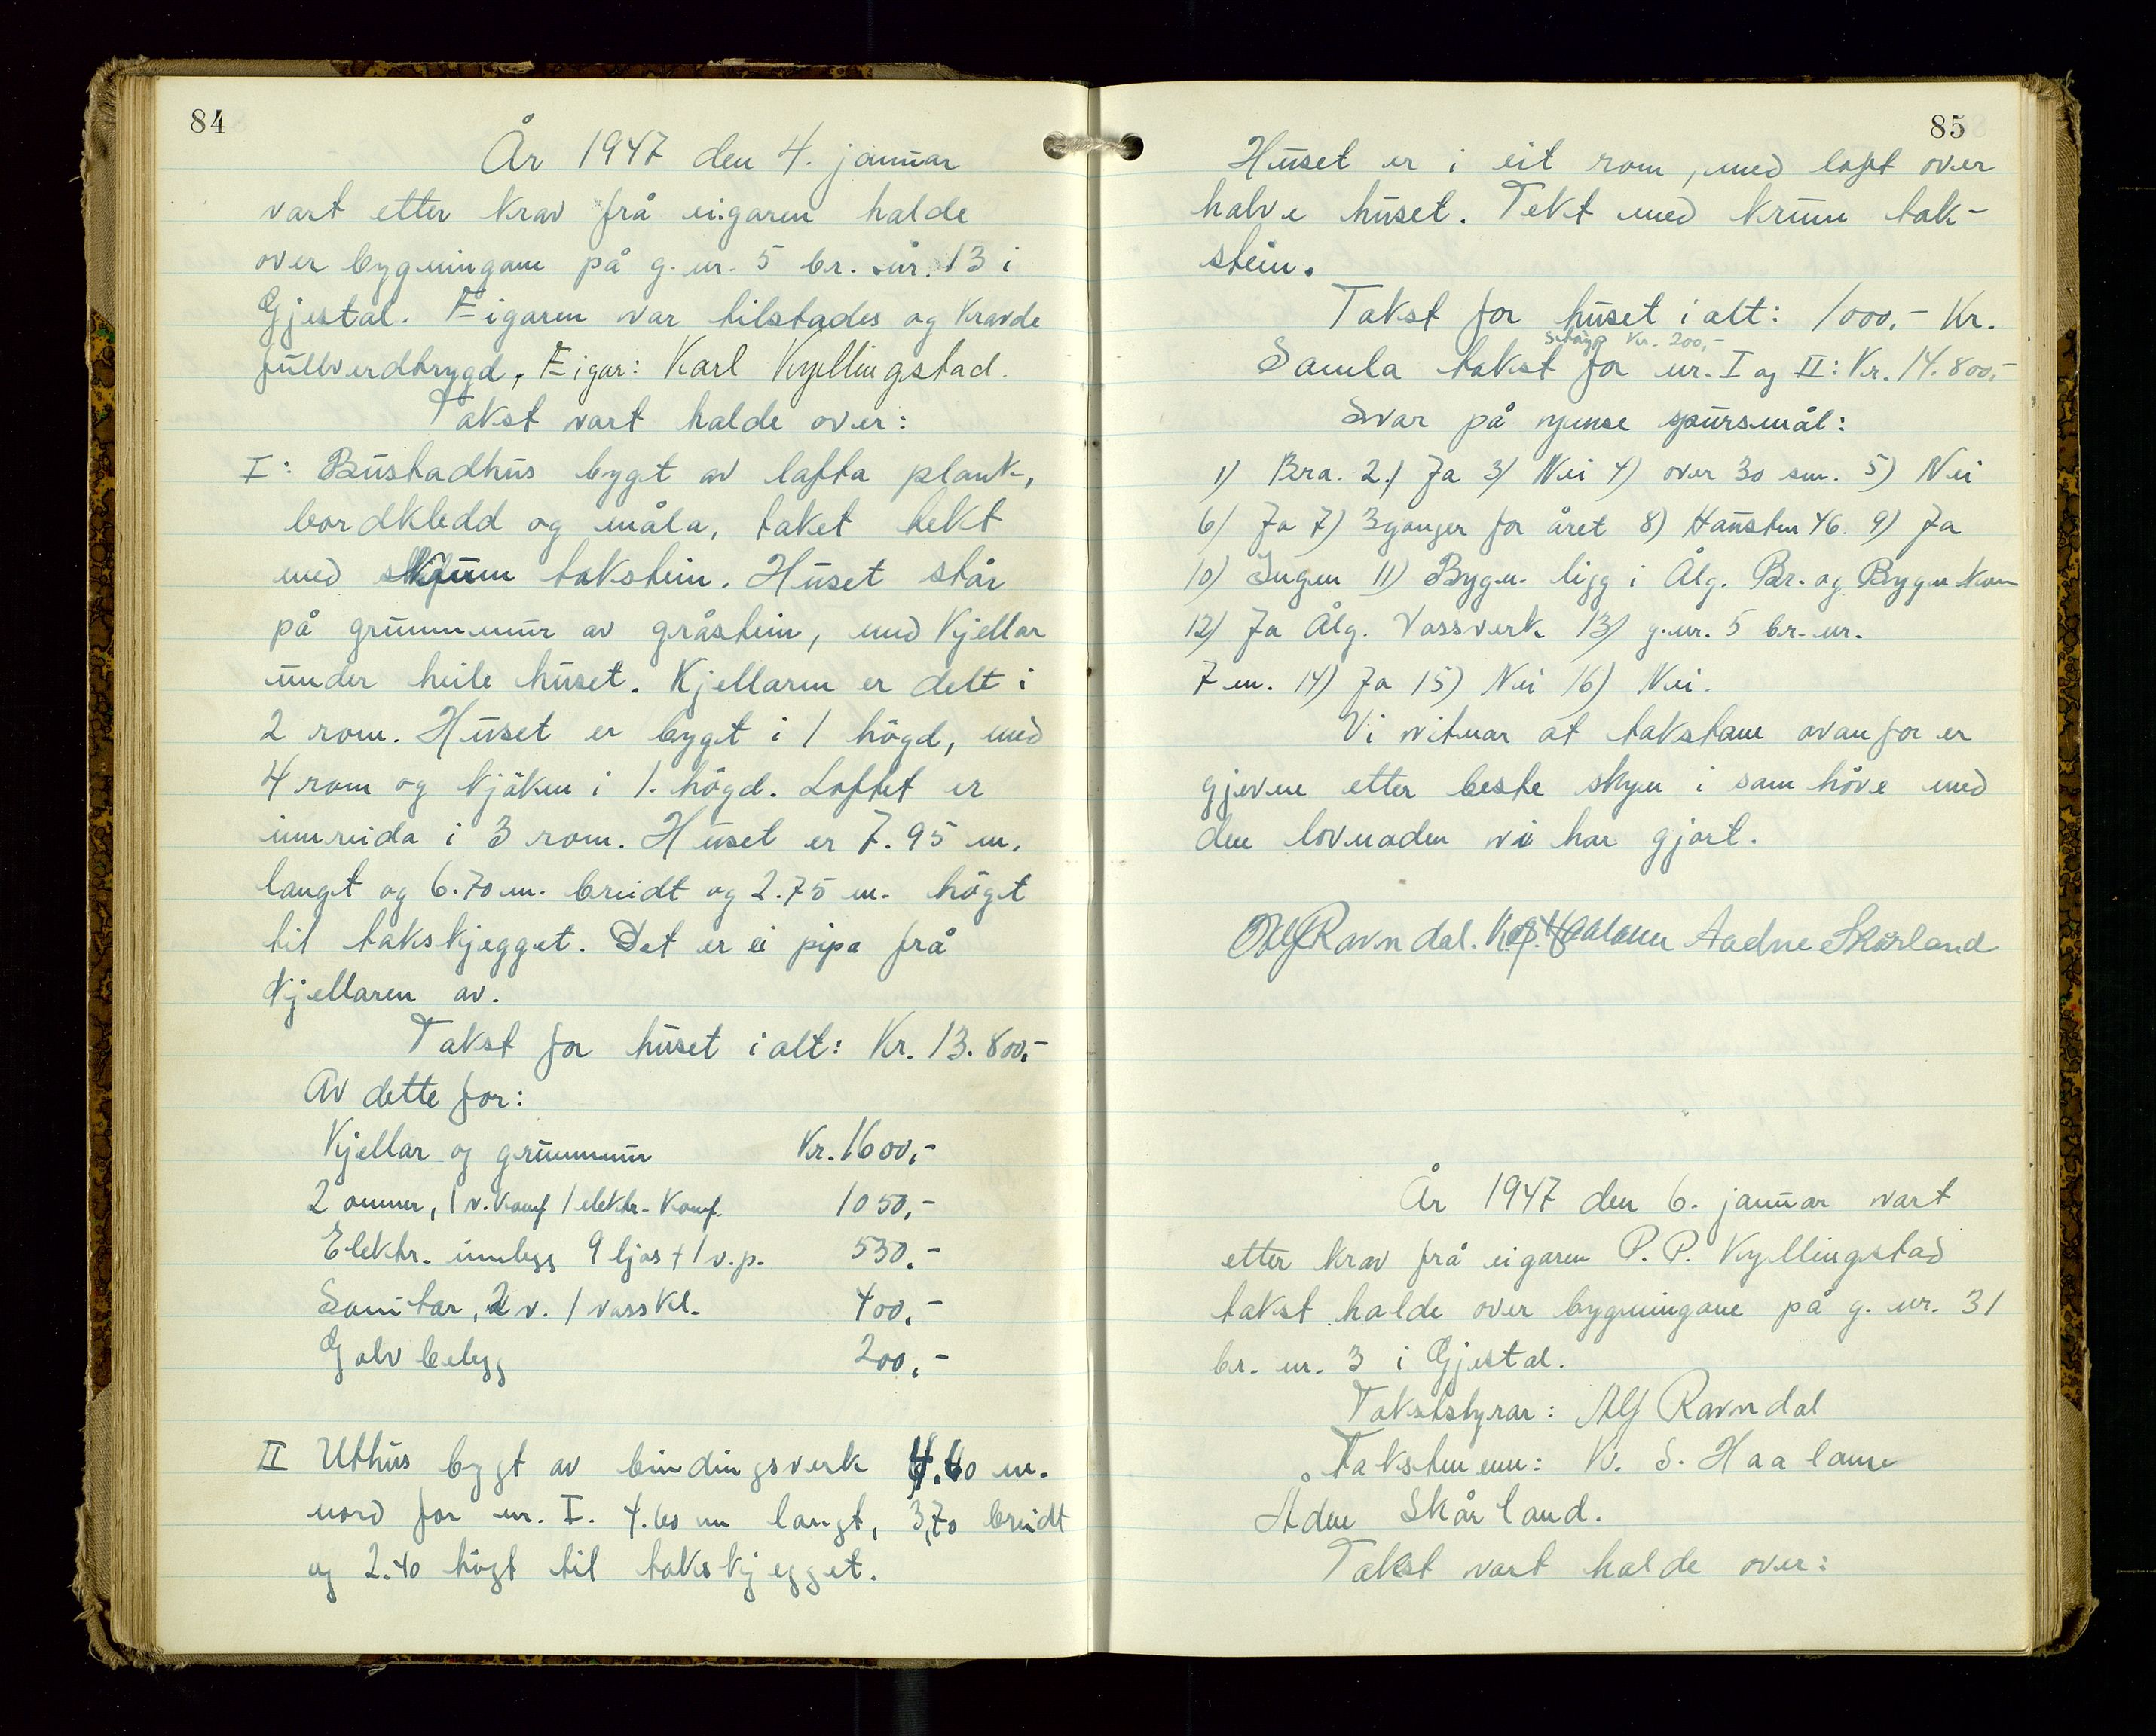 84
År 1947 den 4. januar
vart etter krav frå eigaren halde
over bygningane på g. nr. 5 br. nr. 13 i
Gjestal. Eigaren var tilstades og kravde
fullverdtrygd, Eigar: Karl Kyllingstad.
Takst vart halde over:
I: Bustadhus bygt av lafta plank,
bordkledd og måla, taket tekt
med takstein. Huset står
på grunnmur av gråstein, med kjellar
under heile huset. Kjellaren er delt i
2 rom. Huset er bygt i 1 högd, med
4 rom og kjöken i 1. högd. Loftet er
innreida i 3 rom. Huset er 7.95 m.
langt og 6.70 m. breidt og 2.75 m. högt
til takskjegget. Det er ei pipa frå
kjellaren av.
Takst for huset i alt: Kr. 13.800,-
Av dette for:
Kjellar og grunnmur Kr. 1600,-
2 omner, 1 v. komf 1 elektr. komf. 1050,-
Elektr. innlegg 9 ljos + 1 v.p. 550,-
Sanitær, 2 v. 1 vasskl. 400,-
Golvbelegg 200,-
II Uthus bygt av bindingsverk m.
nord for nr. I. 4.60 m langt, 3,70 breidt
og 2.40 högt til takskjegget.
85
Huset er i eit rom, med loft over
halve huset. Tekt med krum tak-
stein.
Takst for huset i alt: 1000,- Kr.
Kr. 200,-
Samla takst for nr. I og II: Kr. 14.800,-
Svar på nymse spursmål:
1) Bra. 2.) Ja 3) Nei 4) over 30 sm. 5) Nei
6) Ja 7) 3 gonger for året 8) Hausten 46. 9) Ja
10) Ingen 11) Bygn. ligg i Ålg. Br. og Bygn kom
12) Ja Ålg. Vassverk 13) g. nr. 5 br. nr.
7 m. 14) Ja 15) Nei 16) Nei.
Vi vitnar at takstane ovanfor er
gjevne etter beste skyn i samhöve med
den lovnaden vi har gjort.
Alf Ravndal. Haaland Aadne Skårland
År 1947 den 6. januar vart
etter krav frå eigaren P. P. Kyllingstad
takst halde over bygningane på g. nr. 31
br. nr. 3 i Gjestal.
Takststyrar: Alf Ravndal
Takstmenn: K. S. Haaland
Ådne Skårland.
Takst vart halde over: